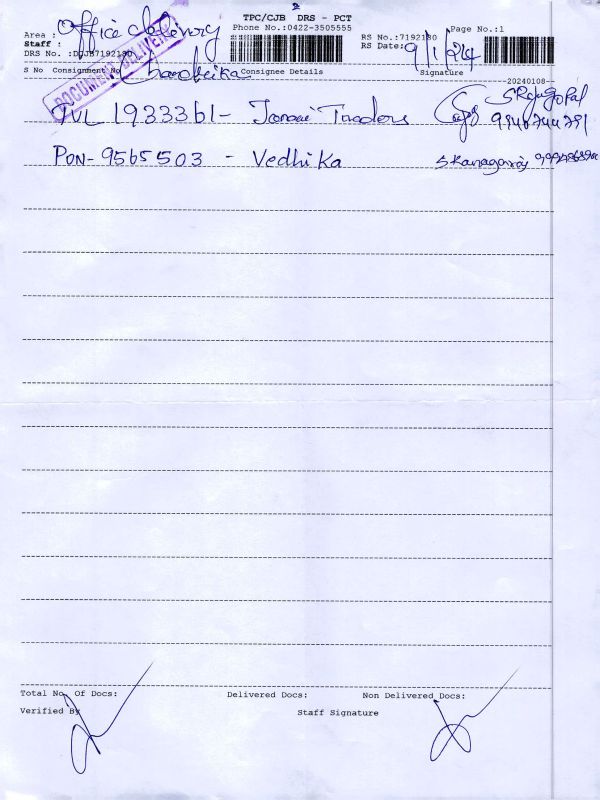 2
TPC/CJB DRS - PCT
Phone No.:0422-3505555
Area : Office delivery
RS No.:7192180 Page No.:1
Staff :
RS Date: 9/1/24
DRS No. :DCJB7192180
DOCUMENT DELIVERY
S No Consignment No Consignee Details Signature
20240108
TVL 1933361 - Janani Traders S Rajagopal
PON- 9565503 - Vedhika S Kanagaraj
Total No. Of Docs: Delivered Docs: Non Delivered Docs:
Verified By Staff Signature